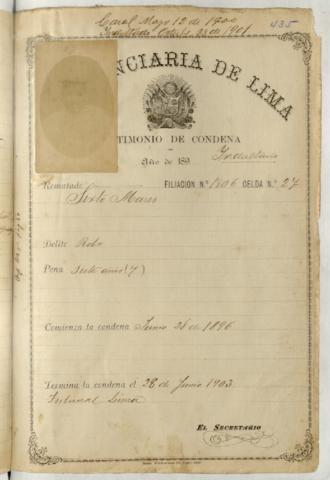 Mayo 12 de 1900
de 1901
435
NCIARIA DE LIMA
TIMONIO DE CONDENA
Año de 189
Rematado Sixto FILIACION N.º 1806 CELDA N.º 27
Delito Robo
Pena Siete años (7)
Comienza la condena Junio 28 de 1896
Termina la condena el 28 de Junio 1903
Tribunal Lima
EL SECRETARIO